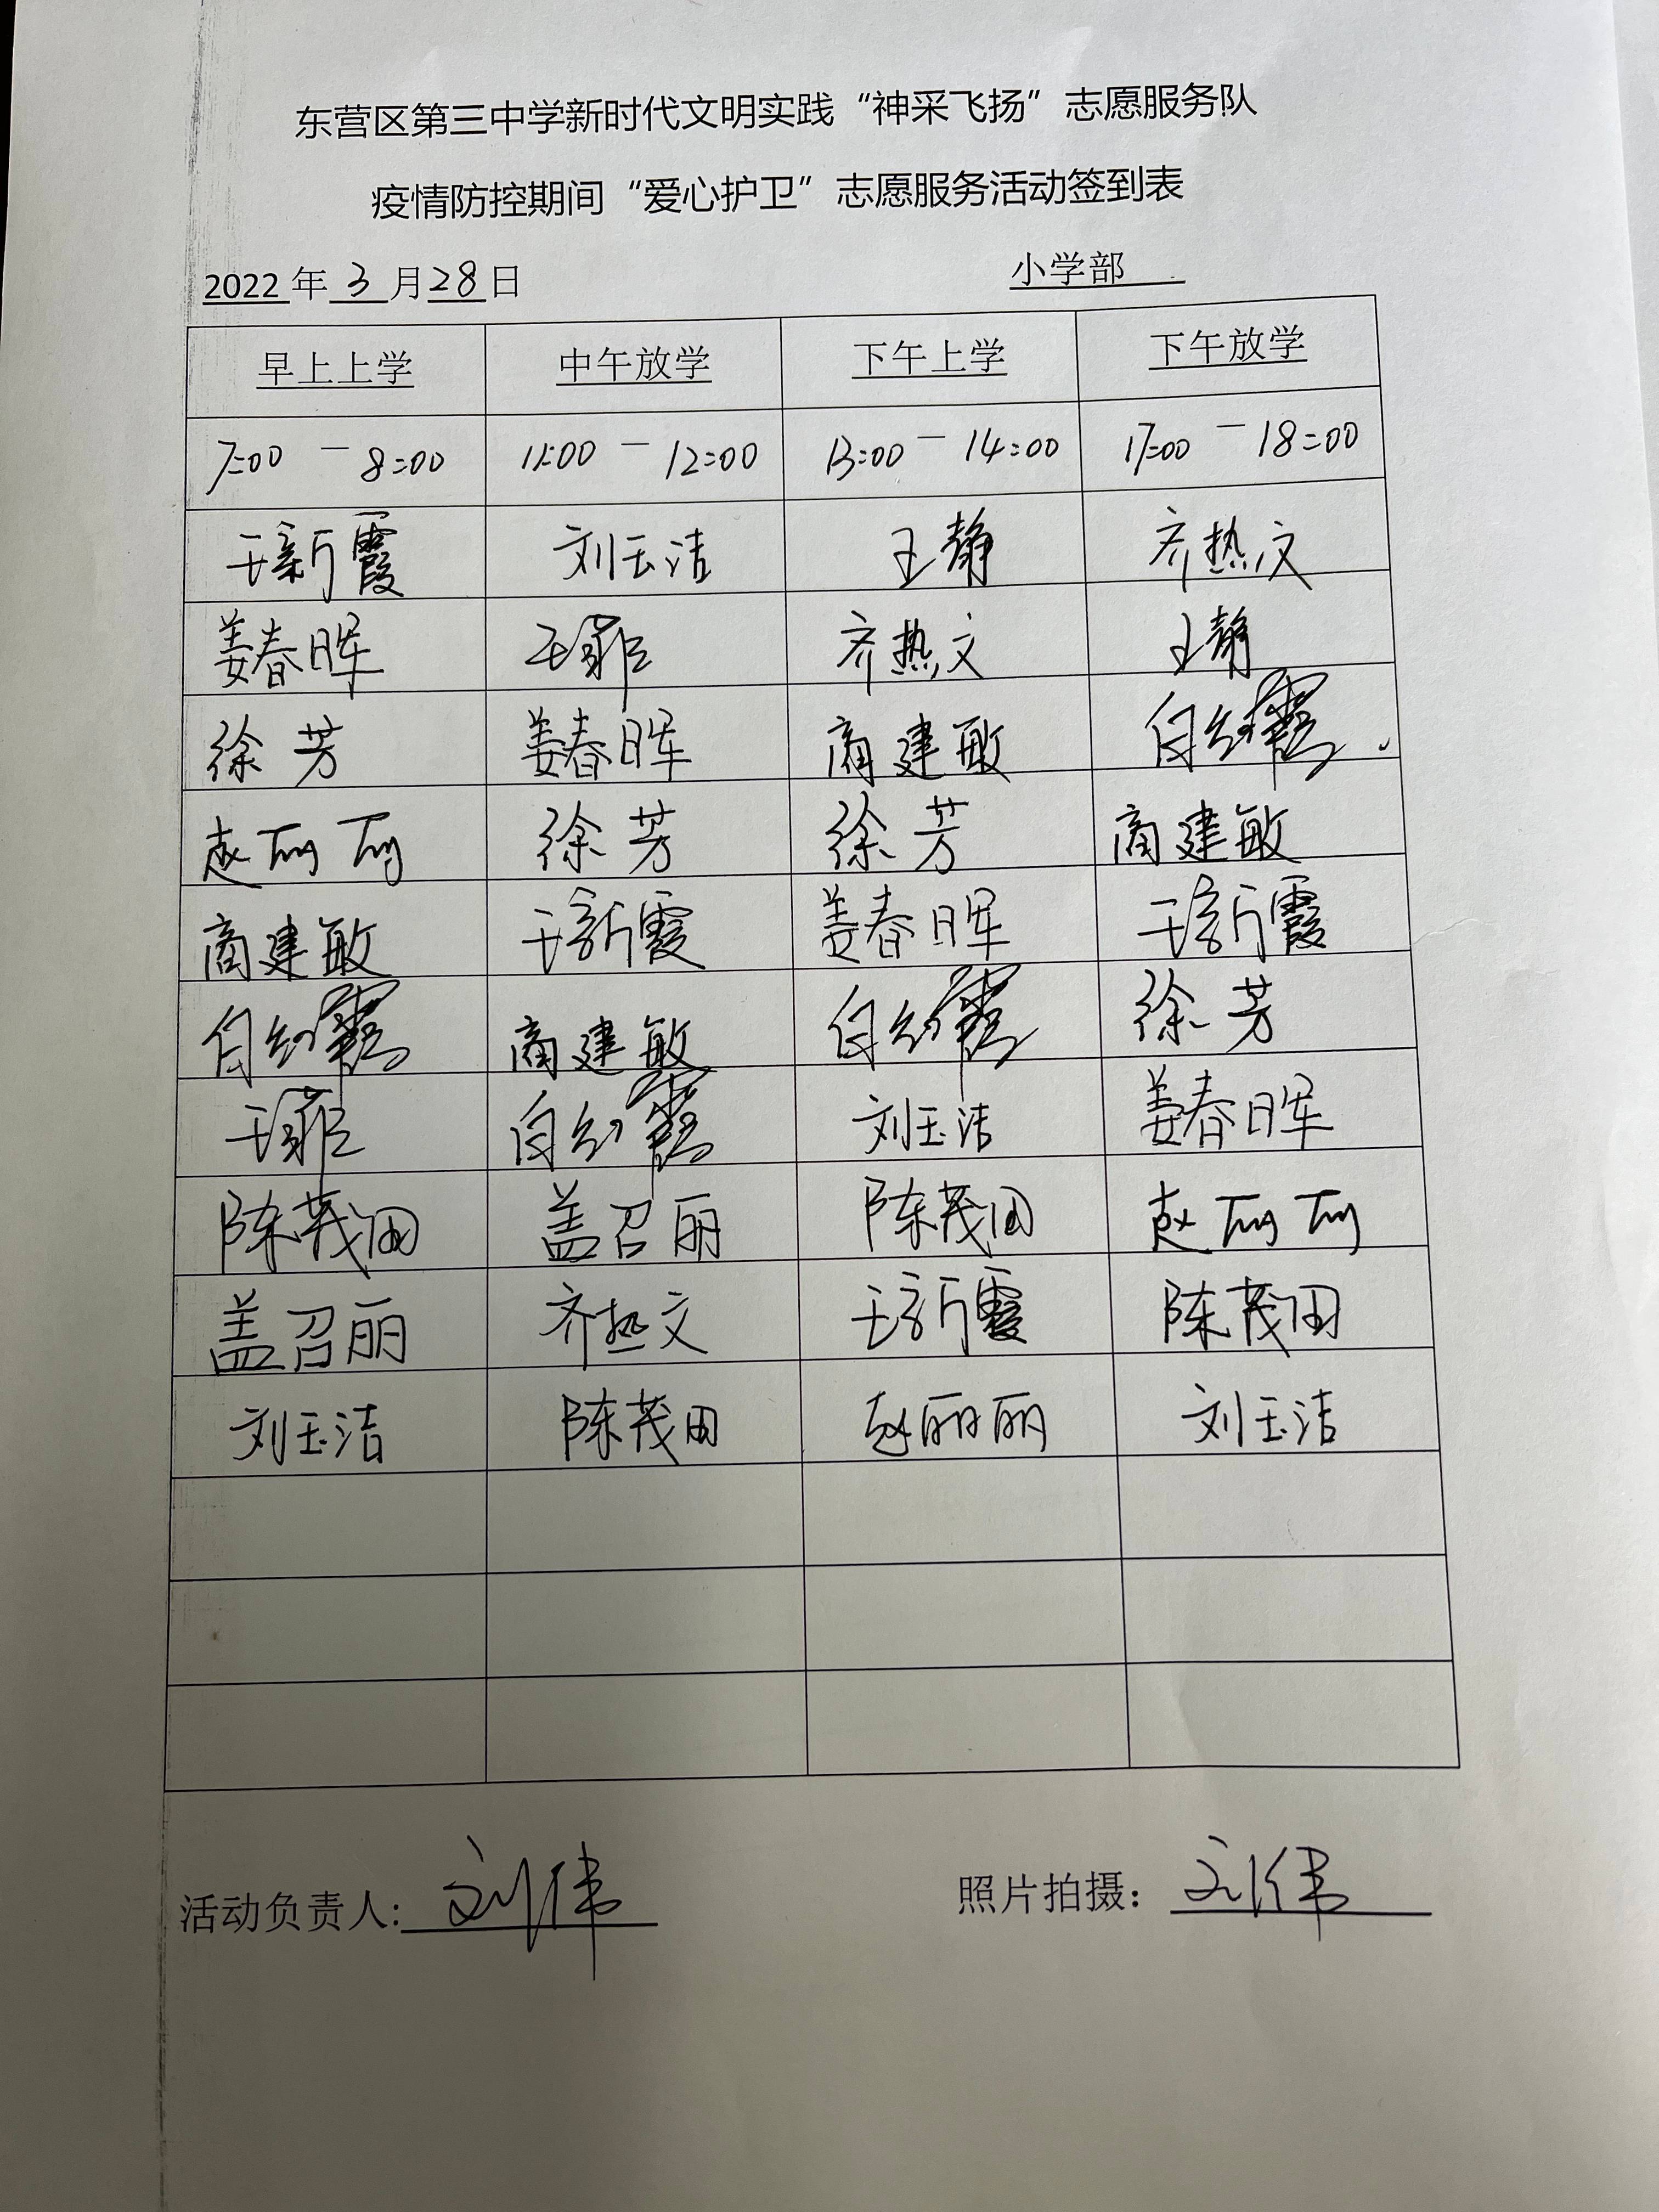 东营区第三中学新时代文明实践“神采飞扬”志愿服务队
疫情防控期间“爱心护卫”志愿服务活动签到表
2022年3月28日 小学部
早上上学 中午放学 下午上学 下午放学
7:00 — 8:00 11:00 — 12:00 13:00 — 14:00 17:00 — 18:00
于新霞 刘玉洁 王静 齐热文
姜春晖 于菲 齐热文 王静
徐芳 姜春晖 商建敏
赵丽丽 徐芳 徐芳 商建敏
商建敏 于新霞 姜春晖 于新霞
商建敏 徐芳
于菲 刘玉洁 姜春晖
陈茂田 盖召丽 陈茂田 赵丽丽
盖召丽 齐热文 于新霞 陈茂田
刘玉洁 陈茂田 赵丽丽 刘玉洁
活动负责人:刘伟 照片拍摄：刘伟